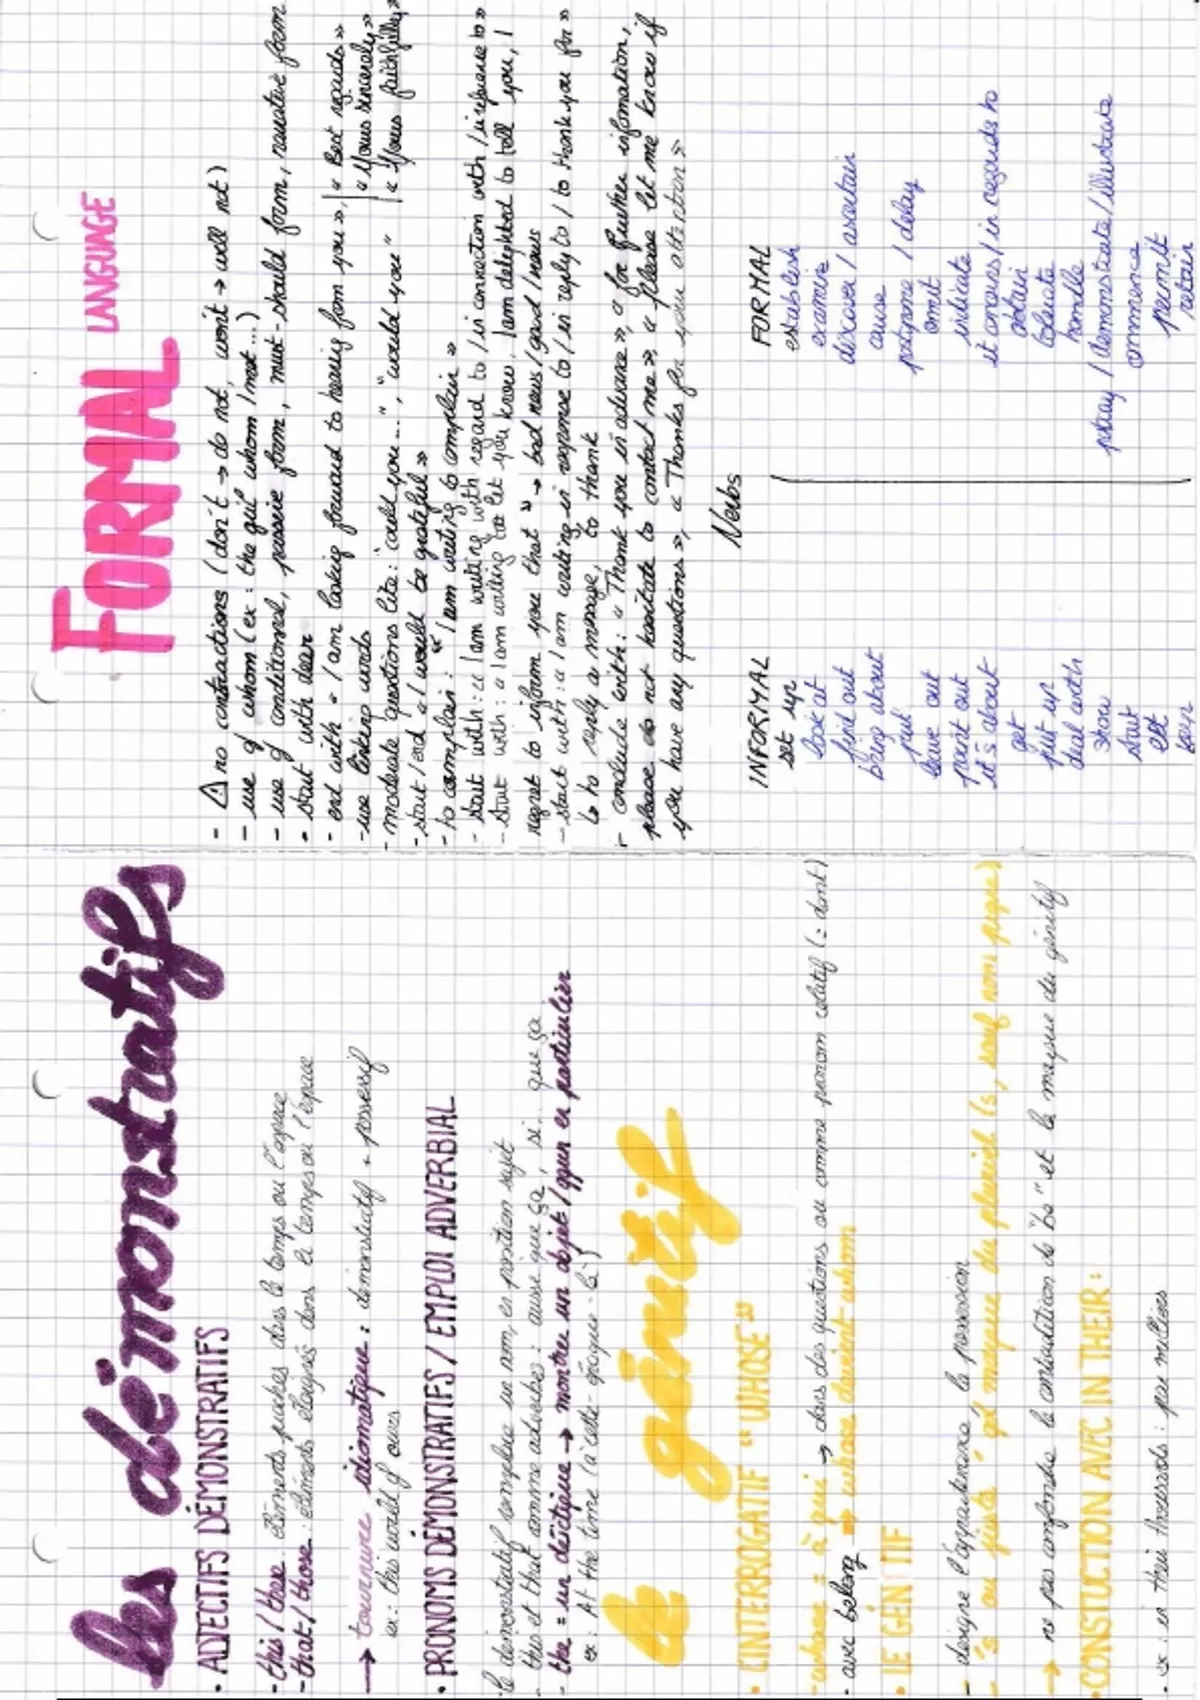 les démonstratifs
• ADJECTIFS DÉMONSTRATIFS
- this / these : éléments proches dans le temps ou l'espace
- that / those : éléments éloignés dans le temps ou l'espace
→ tournure idiomatique : démonstratif + possessif
ex : this world of ours
• PRONOMS DÉMONSTRATIFS / EMPLOI ADVERBIAL
- le démonstratif remplace un nom, en position sujet
- this et that comme adverbes : aussi que ça, si... que ça
- the = un déictique → montre un objet / qqun en particulier
ex : At the time (à cette époque-là)
le génitif
• L'INTERROGATIF "WHOSE"
- whose = à qui → dans des questions ou comme pronom relatif (= dont)
• avec belong → whose devient whom
• LE GÉNITIF
- désigne l'appartenance, la possession
- 's ou juste ' qd marque du pluriel (s, sauf noms propres)
→ ne pas confondre la contraction de "be" et la marque du génitif
• CONSTUCTION AVEC IN THEIR :
• ex : in their thousands : par milliers
FORMAL LANGUAGE
- ⚠ no contractions (don't → do not, won't → will not)
- use of whom (ex : the girl whom I met...)
- use of conditional, passive form, must - should form, narrative form
• start with dear
- end with « I am looking forward to hearing from you », | « Best regards »
- use linking words | « Yours sincerely »
- moderate questions like : "could you...", "would you" | « Yours faithfully »
- start / end « I would be grateful »
- to complain : « I am writing to complain »
- start with : « I am writing with regard to / in connection with / in reference to »
- start with : « I am writing to let you know, I am delighted to tell you, I
regret to inform you that » → bad news / good news
- start with : « I am writing in response to / in reply to / to thank you for »
↳ to reply a message, to thank
- conclude with : « Thank you in advance », « for further information,
please do not hesitate to contact me », « Please let me know if
you have any questions », « Thanks for your attention »
Verbs
INFORMAL FORMAL
set up establish
look at examine
find out discover / ascertain
bring about cause
put postpone / delay
leave out omit
point out indicate
it's about it concerns / in regards to
get obtain
put up tolerate
deal with handle
show portray / demonstrate / illustrate
start commence
let permit
keep retain